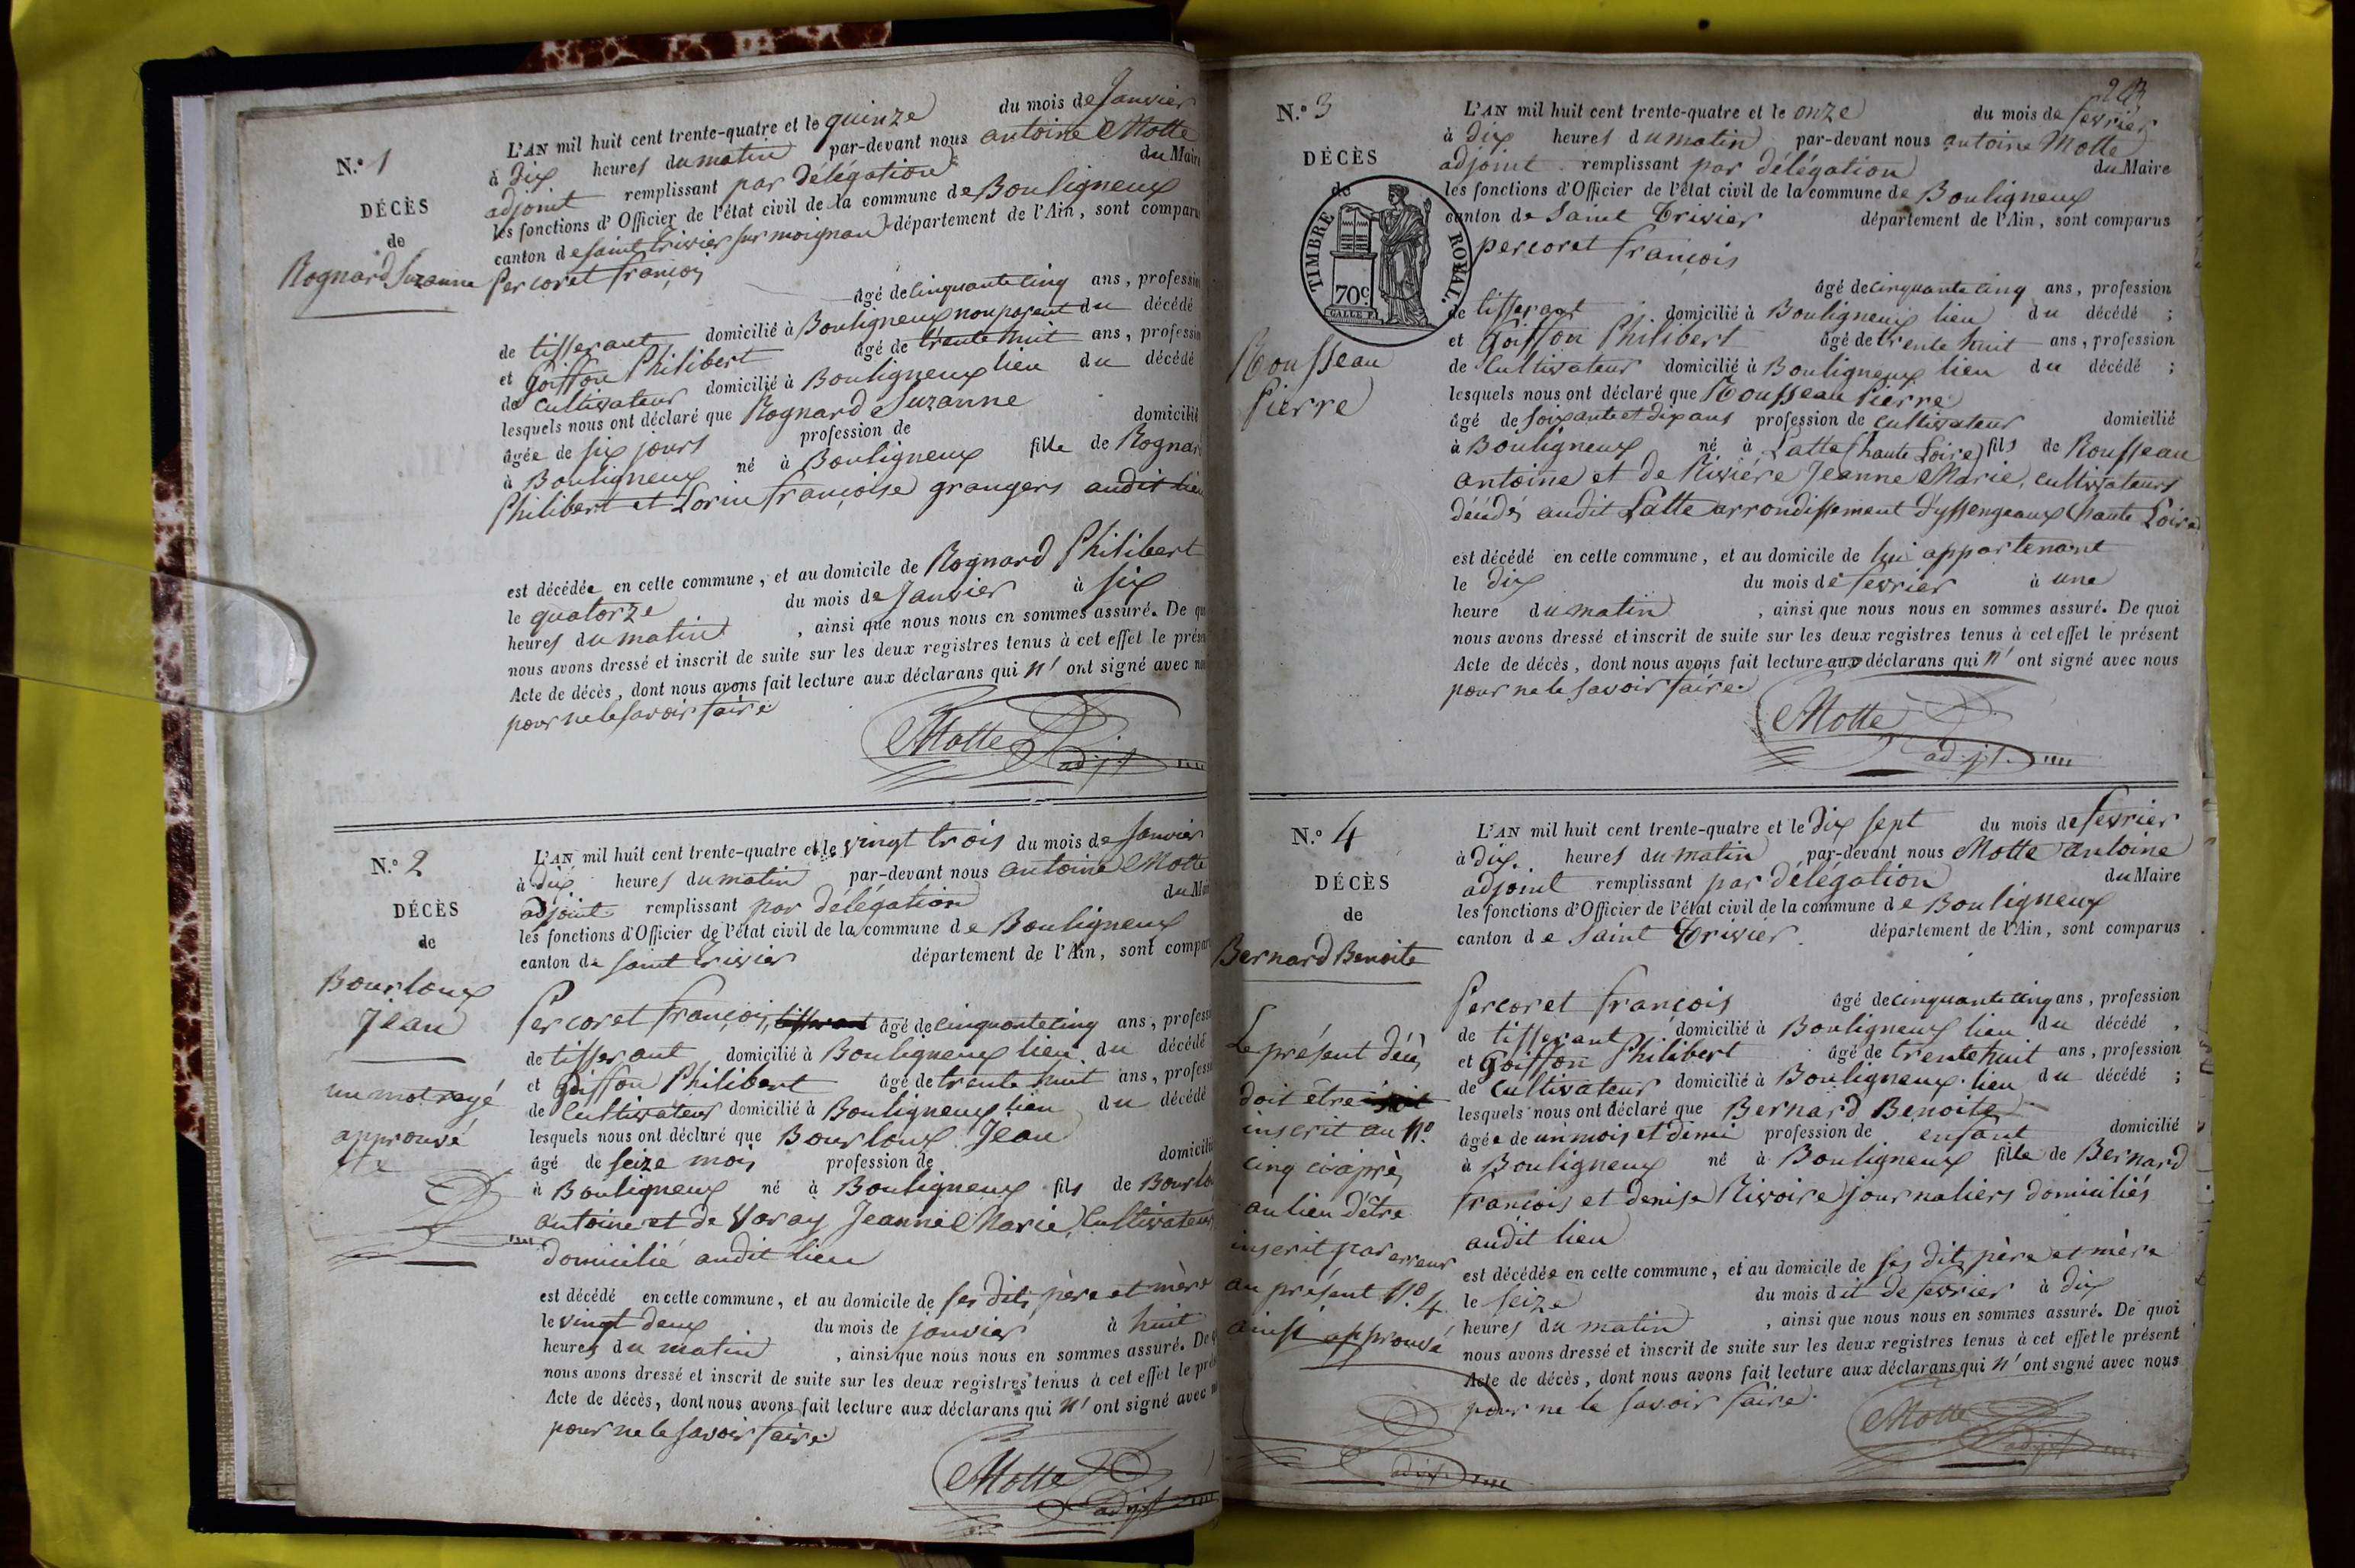 N.° 1
DÉCÈS
de
Rognard Suzanne
L'AN mil huit cent trente-quatre et le quinze du mois de Janvier
à dix heures du matin par-devant nous antoine Motte
adjoint remplissant par délégation du Maire
les fonctions d'Officier de l'état civil de la commune de Bouligneux
canton de saint trivier sur moignan département de l'Ain, sont comparu
Percoret françois
âgé de cinquante cinq ans, profession
de tisserant domicilié à Bouligneux non parent du décédé
et Goiffon Philibert âgé de trente huit ans, profession
de cultivateur domicilié à Bouligneux lieu du décédé
lesquels nous ont déclaré que Rognard Suzanne
âgée de six jours profession de domicilié
à Bouligneux né à Bouligneux fille de Rognard
Philibert et Lorin françoise grangers audit lieu
est décédée en cette commune, et au domicile de Rognard Philibert
le quatorze du mois de Janvier à six
heures du matin, ainsi que nous nous en sommes assuré. De qu
nous avons dressé et inscrit de suite sur les deux registres tenus à cet effet le prés
Acte de décès, dont nous avons fait lecture aux déclarans qui n' ont signé avec no
pour ne le savoir faire
Motte
adjt
N.° 2
DÉCÈS
de
Bourloux
Jean
un mot rayé
approuvé
L'AN mil huit cent trente-quatre et le vingt trois du mois de Janvier
à dix heures du matin par-devant nous antoine Motte
adjoint remplissant par délégation du Mai
les fonctions d'Officier de l'état civil de la commune de Bouligneux
canton de saint trivier département de l'Ain, sont compar
Percoret françois, tisserant âgé de cinquante cinq ans, profess
de tisserant domicilié à Bouligneux lieu du décédé
et Goiffon Philibert âgé de trente huit ans, profess
de Cultivateur domicilié à Bouligneux lieu du décédé
lesquels nous ont déclaré que Bourloux Jean
âgé de seize mois profession de domicilié
à Bouligneux né à Bouligneux fils de Bourlo
antoine et de Varay Jeanne Marie, Cultivateurs
domicilié audit lieu
est décédé en cette commune, et au domicile de ses dits père et mère
le vingt deux du mois de janvier à huit
heures du matin, ainsi que nous nous en sommes assuré. De q
nous avons dressé et inscrit de suite sur les deux registres tenus à cet effet le prés
Acte de décès, dont nous avons fait lecture aux déclarans qui n' ont signé avec n
pour ne le savoir faire
Motte
adjt
N.° 3
DÉCÈS
de
TIMBRE ROYAL.
70c
Rousseau
Pierre
L'AN mil huit cent trente-quatre et le onze du mois de fevrier
à dix heures du matin par-devant nous antoine Motte
adjoint remplissant par délégation du Maire
les fonctions d'Officier de l'état civil de la commune de Bouligneux
canton de Saint Trivier département de l'Ain, sont comparus
percoret françois
âgé de cinquante cinq ans, profession
de tisserant domicilié à Bouligneux lieu du décédé ;
et Goiffon Philibert âgé de trente huit ans, profession
de Cultivateur domicilié à Bouligneux lieu du décédé ;
lesquels nous ont déclaré que Rousseau Pierre
âgé de soixante et dix ans profession de cultivateur domicilié
à Bouligneux né à Latte (haute Loire) fils de Rousseau
antoine et de Rivière Jeanne Marie, cultivateurs
décédés audit Latte arrondissement d'yssengeaux (haute Loire)
est décédé en cette commune, et au domicile de lui appartenant
le dix du mois de fevrier à une
heure du matin, ainsi que nous nous en sommes assuré. De quoi
nous avons dressé et inscrit de suite sur les deux registres tenus à cet effet le présent
Acte de décès, dont nous avons fait lecture aux déclarans qui n' ont signé avec nous
pour ne le savoir faire.
Motte
adjt.
N.° 4
DÉCÈS
de
Bernard Benoite
Le présent décès
doit être
inscrit au N.°
cinq ci après
au lieu d'être
inscrit par erreur
au présent N.° 4
ainsi approuvé
adjt
L'AN mil huit cent trente-quatre et le dix sept du mois de fevrier
à dix heures du matin par-devant nous Motte antoine
adjoint remplissant par délégation du Maire
les fonctions d'Officier de l'état civil de la commune de Bouligneux
canton de Saint Trivier. département de l'Ain, sont comparus
Percoret françois âgé de cinquante cinq ans, profession
de tisserant domicilié à Bouligneux lieu du décédé,
et Goiffon Philibert âgé de trente huit ans, profession
de cultivateur domicilié à Bouligneux lieu du décédé ;
lesquels nous ont déclaré que Bernard Benoite
âgée de un mois et demi profession de enfant domicilié
à Bouligneux né à Bouligneux fille de Bernard
françois et denise Rivoire journaliers domiciliés
audit lieu
est décédée en cette commune, et au domicile de ses dits père et mère
le seize du mois dit de fevrier à dix
heures du matin, ainsi que nous nous en sommes assuré. De quoi
nous avons dressé et inscrit de suite sur les deux registres tenus à cet effet le présent
Acte de décès, dont nous avons fait lecture aux déclarans qui n' ont signé avec nous
pour ne le savoir faire.
Motte
adjt